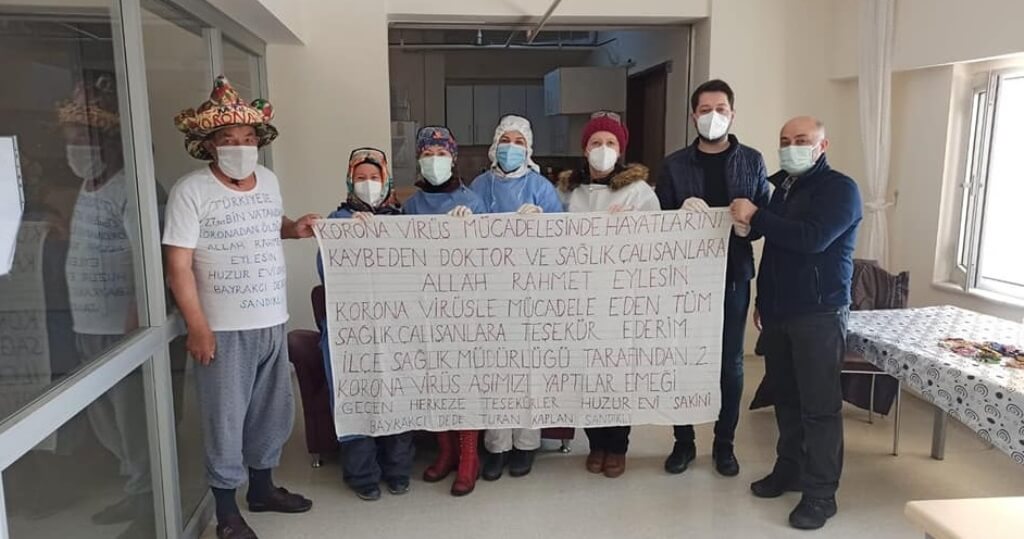 KORONA
TÜRKİYEDE
27 BİN VATANDA
KORONADAN ÖLDÜ
ALLAH RAHMET
EYLESİN
HUZUR EVİ
BAYRAKCI DEDE
SANDIKLI
KORONA VİRÜS MÜCADELESİNDE HAYATLARINI
KAYBEDEN DOKTOR VE SAĞLIK ÇALIŞANLARA
ALLAH RAHMET EYLESİN
KORONA VİRÜSLE MÜCADELE EDEN TÜM
SAĞLIK ÇALIŞANLARA TEŞEKÜR EDERİM
İLÇE SAĞLIK MÜDÜRLÜĞÜ TARAFINDAN 2
KORONA VİRÜS AŞIMIZI YAPTILAR EMEĞİ
GEÇEN HERKEZE TEŞEKÜRLER HUZUR EVİ SAKİNİ
BAYRAKCI DEDE TURAN KAPLAN SANDIKLI